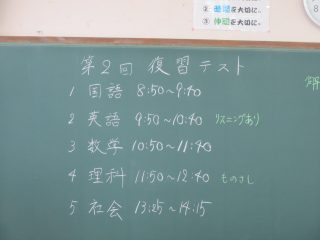 ② 勉強を大切に。
③ 仲間を大切に。
第2回 復習テスト
1 国語 8:50~9:40
2 英語 9:50~10:40 リスニングあり
3 数学 10:50~11:40
4 理科 11:50~12:40 ものさし
5 社会 13:25~14:15